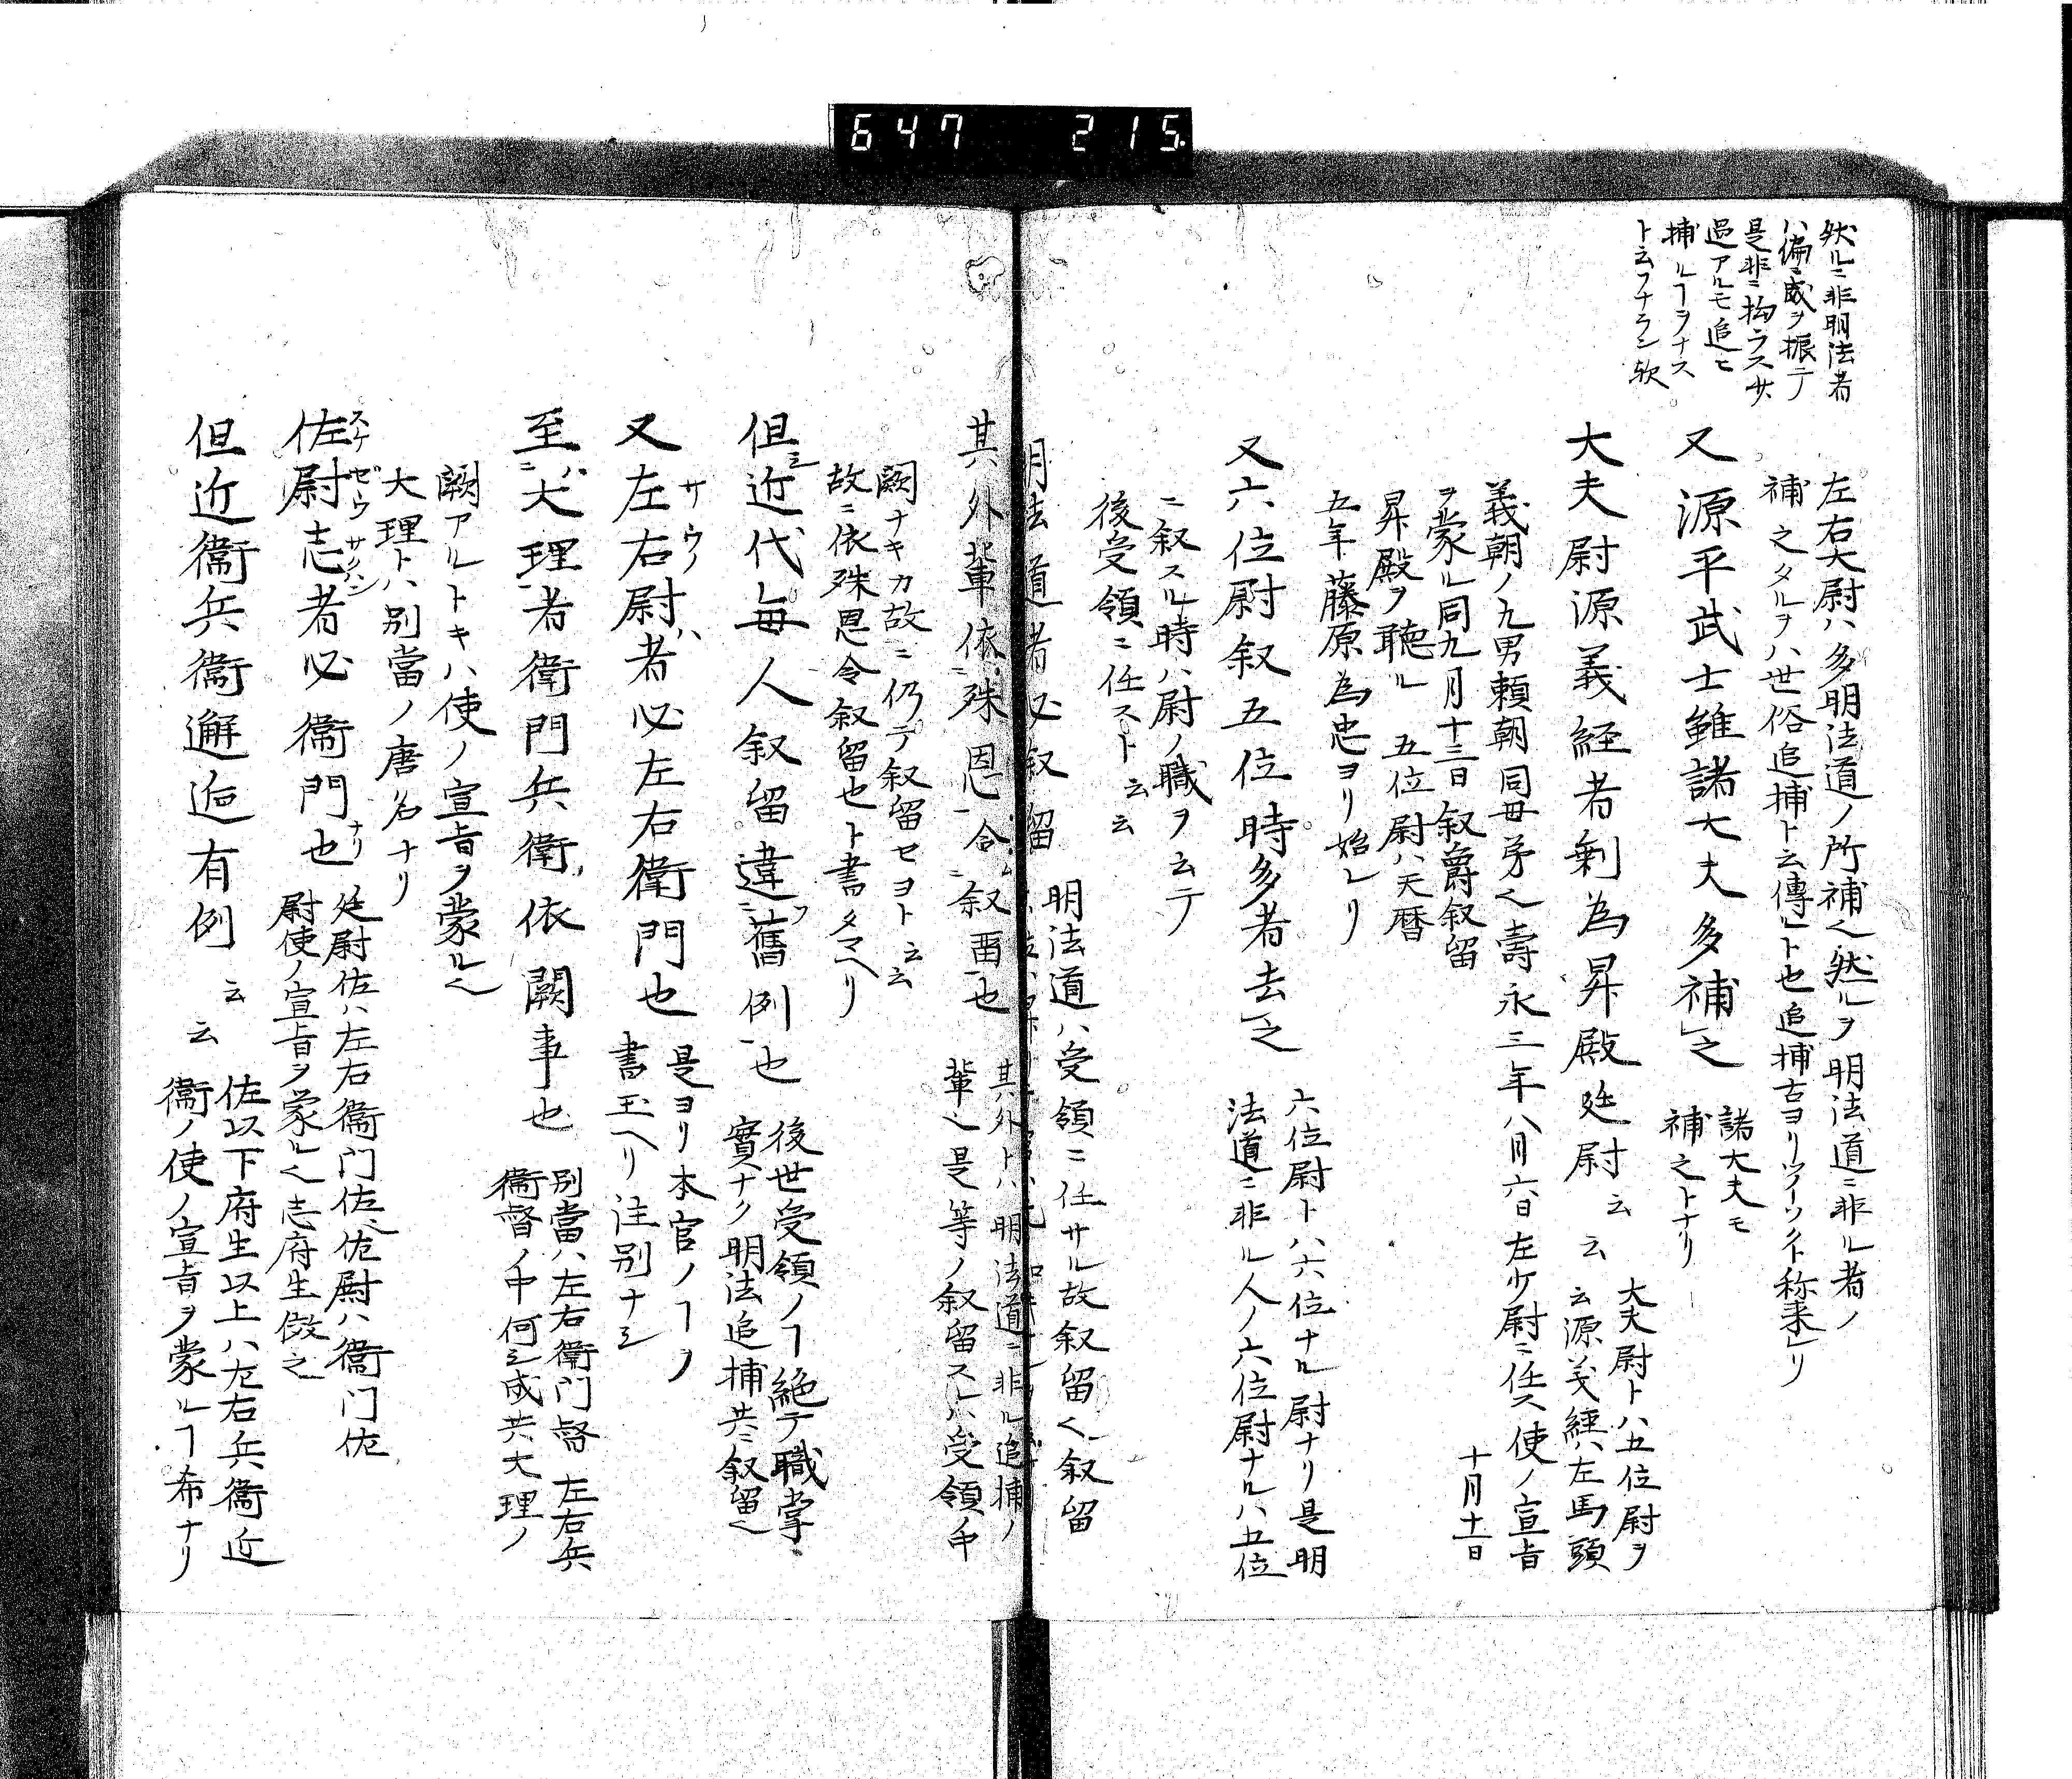 647 215
然ルニ非明法者
ハ偏ニ威ヲ振テ
是非ニ拘ラス
過アルモ追
捕ルヿヲナス
ト云フナラン歟
左右大尉ハ多明法道ノ所補也然ルヲ明法道ニ非ル者ノ
補之タルヲハ世俗追捕ト云傳ルト也追捕古ヨリツイフクト称来レリ
又源平武士雖諸大夫多補之
諸大夫モ
補之トナリ
大夫尉源義経者剰為昇殿廷尉云云
大夫尉トハ五位尉ヲ
云源義経ハ左馬頭
義朝ノ九男頼朝同母弟也壽永三年八月六日左少尉ニ任ス使ノ宣旨
ヲ蒙ル同九月十三日叙爵叙留
十月十一日
昇殿ヲ聴ル 五位尉ハ天暦
五年藤原為忠ヨリ始レリ
又六位尉叙五位時多者去之
六位尉トハ六位ナル尉ナリ是明
法道ニ非ル人ノ六位尉ナルハ五位
ニ叙スル時ハ尉ノ職ヲ云テ
後受領ニ任スト云云
明法道者必叙留
明法道ハ受領ニ任サル故叙留也叙留
其外輩依殊恩令叙留也
其外トハ明法道ニ非ル追捕ノ
輩也是等ノ叙留スルハ受領ノ中
闕ナキカ故ニ仍テ叙留セヨト云云
故ニ依殊恩令叙留也ト書タマヘリ
但シ近代毎人叙留違舊例也
後世受領ノヿ絶テ職掌ニ
實ナク明法追捕共ニ叙留也
又左右尉者必左右衛門也
サウノ ハ
是ヨリ本官ノヿヲ
書玉ヘリ注別ナシ
至ハ大理者衛門兵衛依闕事也
別當ハ左右衛門督左右兵
衛督ノ中何シ成共大理ノ
闕アルトキハ使ノ宣旨ヲ蒙ル也
大理トハ別當ノ唐名ナリ
佐尉志者必衛門也
スケ ゼウ サクハン ナリ
廷尉佐ハ左右衛門佐也佐尉ハ衛門佐
尉使ノ宣旨ヲ蒙ル也志府生倣之
但近衛兵衛邂逅有例云云
佐以下府生以上ハ左右兵衛近
衛ノ使ノ宣旨ヲ蒙ルヿ希ナリ